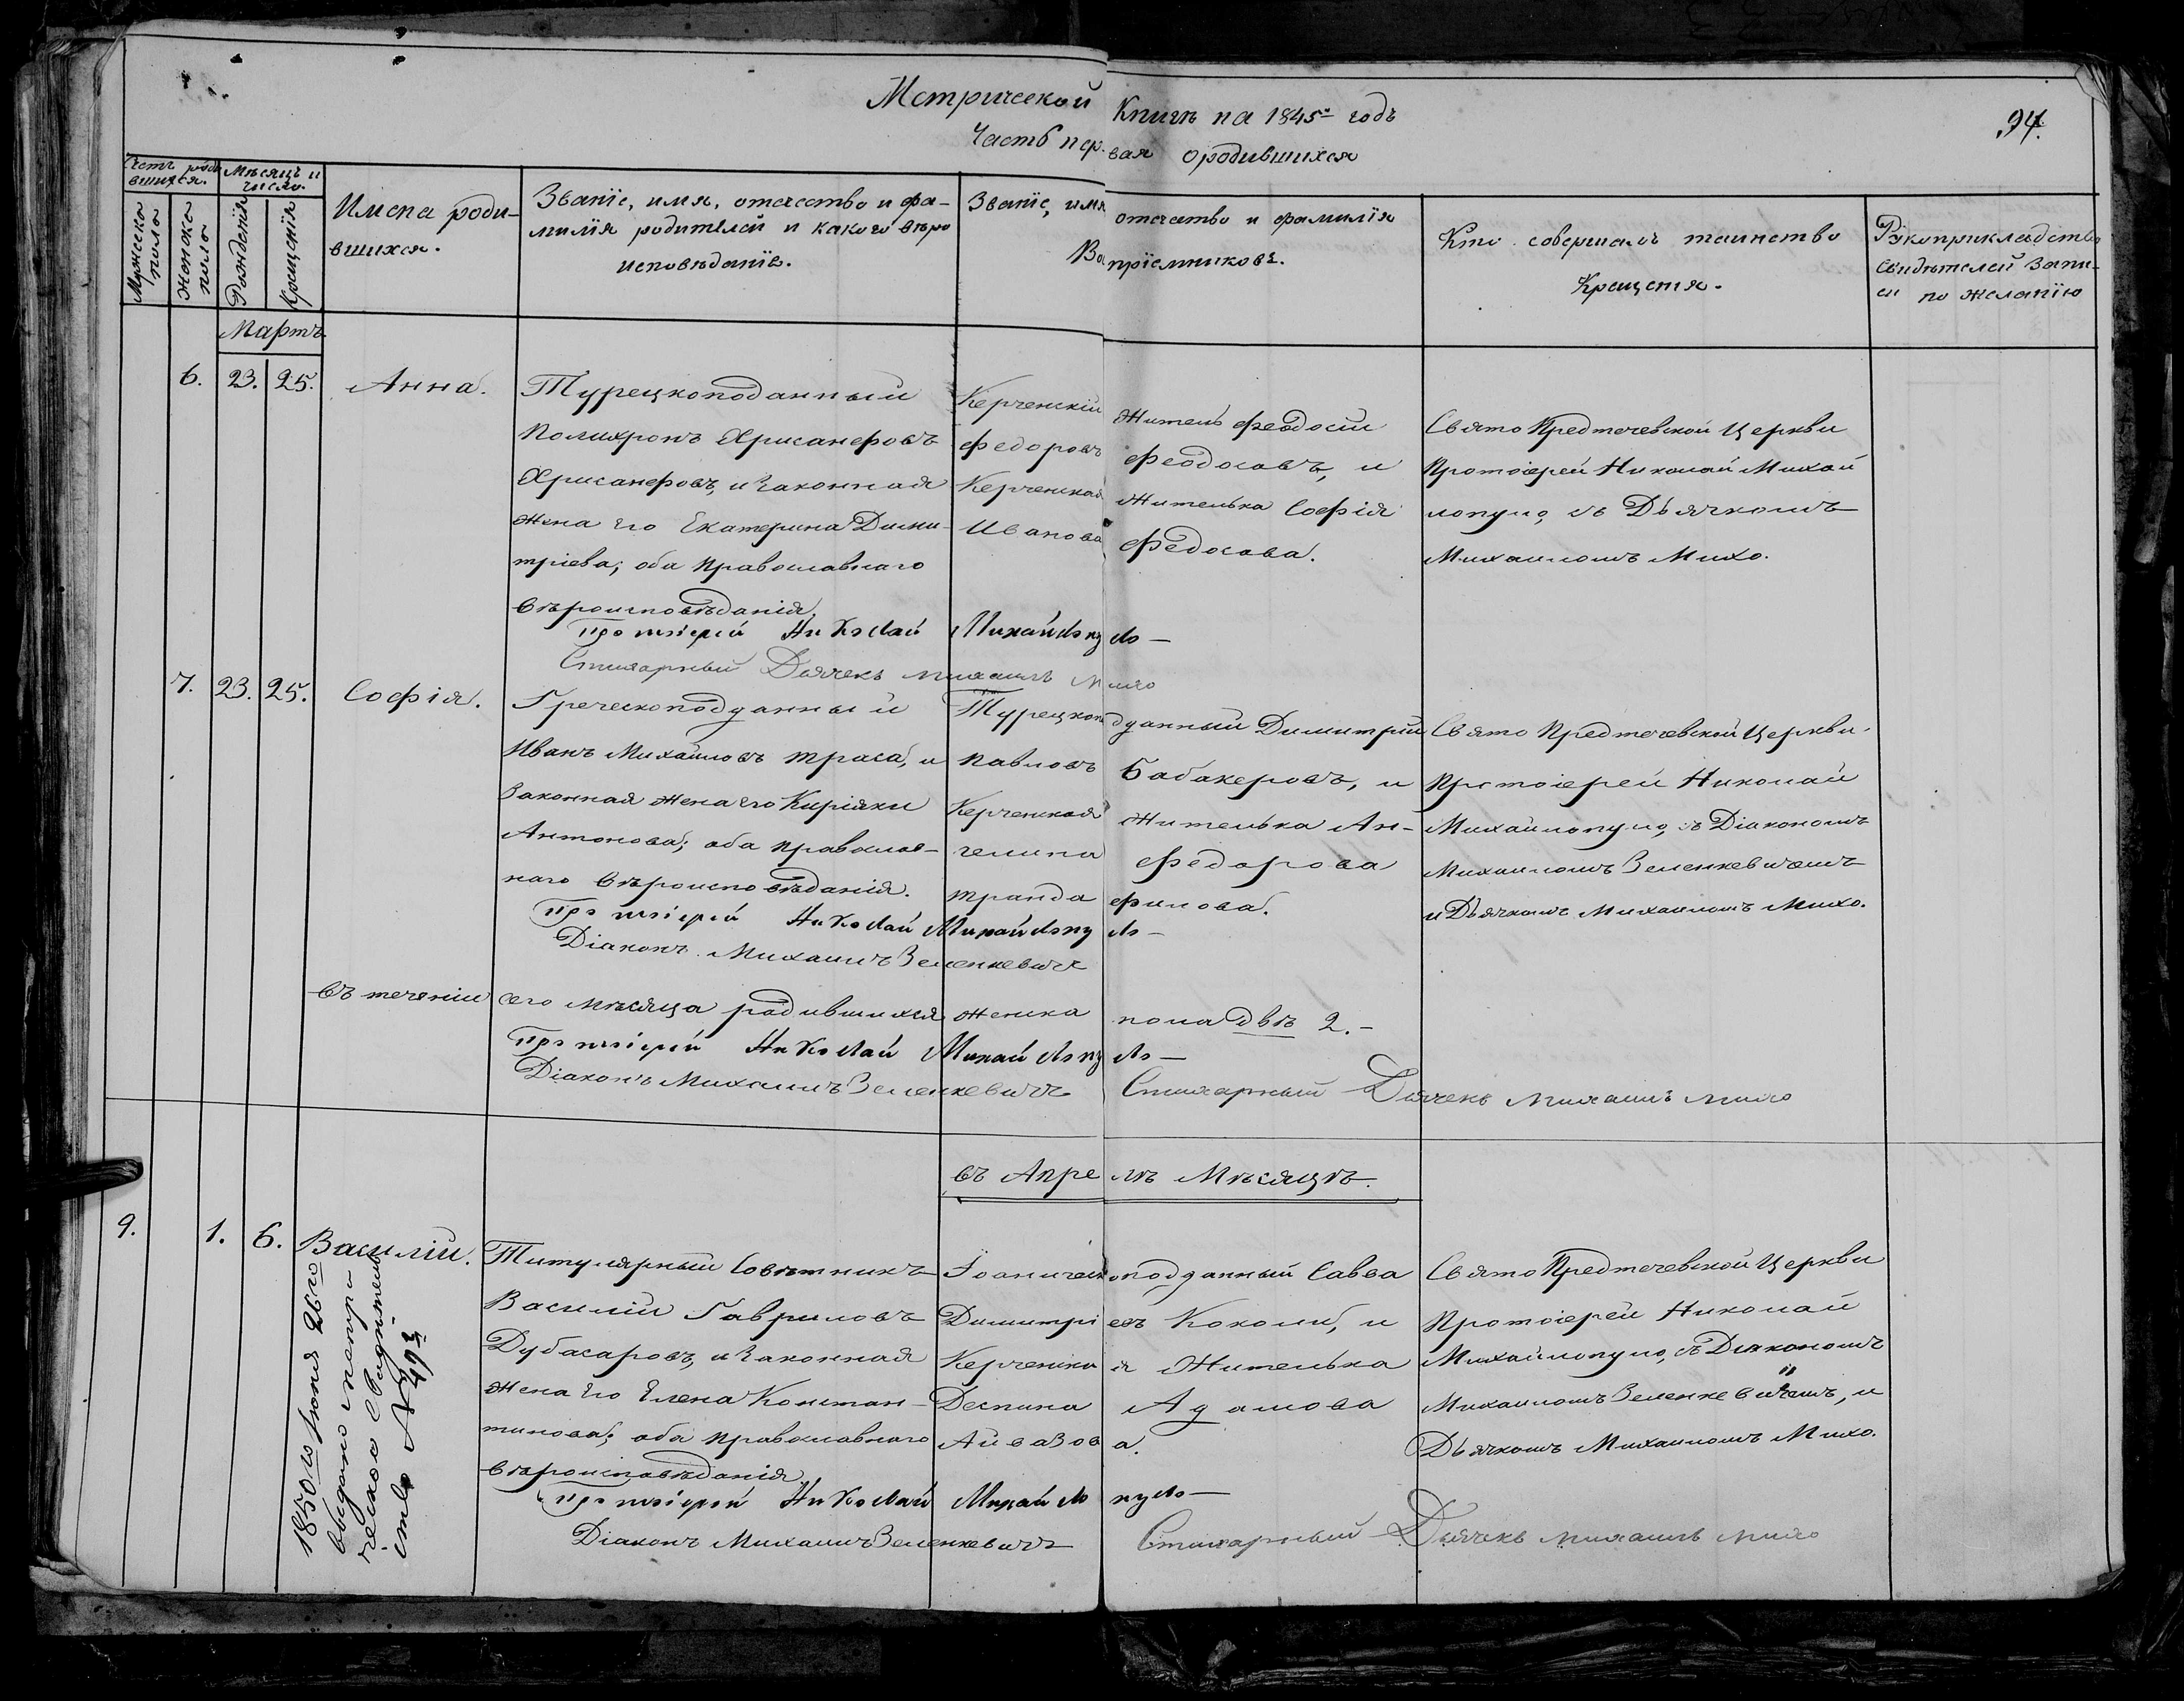 Метрической Книги на 1845й годъ
94.
Часть первая о родившихся
Счетъ родившихся.
Мѣсяцъ и число.
Мужеска пола
Женска пола
Рожденія
Крещенія
Имена роди-
вшихся.
Званіе, имя, отчество и фа-
милія родителей и какого вѣро
исповѣданія.
Званіе, имя отчество и фамилія
Воспріемниковъ.
Кто совершалъ таинство
Крещенія.
Рукоприкладство
свидѣтелей запи-
си по желанію
Мартъ
6. 23. 25. Анна.
Турецкоподанный
Полихронъ Хрисанфовъ
Хрисанфовъ, и законная
жена его Екатерина Дими-
тріева; оба православнаго
вѣроисповѣданія.
Керченскій житель Феодосій
Федоровъ Феодосовъ, и
Керченская жителька Софія
Иванова Федосова.
Свято Предтечевской Церкви
Протоіерей Николай Михай
лопуло, съ Дьячкомъ
Михаиломъ Михо.
Протоіерей Николай Михайлопуло —
Стихарный Дьячекъ Михаилъ Михо
7. 23. 25. Софія.
Греческоподданный
Иванъ Михайловъ Траса, и
законная жена его Киріяки
Антонова; оба православ-
наго вѣроисповѣданія.
Турецкоподданный Димитрій
Павловъ Бабакеровъ, и
Керченская жителька Ан-
гелина Федорова
Трандафилова.
Свято Предтечевской Церкви
Протоіерей Николай
Михайлопуло, съ Діакономъ
Михаиломъ Зеленкевичемъ
и Дьячкомъ Михаиломъ Михо.
Протоіерей Николай Михайлопуло —
Діаконъ Михаилъ Зеленкевичъ
Въ теченіи сего мѣсяца родившихся женска пола двѣ 2. —
Протоіерей Николай Михайлопуло —
Діаконъ Михаилъ Зеленкевичъ Стихарный Дьячекъ Михаилъ Михо
въ Апрелѣ Мѣсяцѣ.
9. 1. 6. Василій.
1850го Іюня 26го
выдано метри
ческое свидѣтель
ство № 49й
Титулярный Совѣтникъ
Василій Гавриловъ
Дубасаровъ, и законная
жена его Елена Констан-
тинова; оба православнаго
вѣроисповѣданія.
Іоаническоподданный Савва
Димитріевъ Коколи, и
Керченская жителька
Деспина Адамова
Айвазова.
Свято Предтечевской Церкви
Протоіерей Николай
Михайлопуло, съ Діякономъ
Михаиломъ Зеленкевичемъ, и
Дьячкомъ Михаиломъ Михо.
Протоіерей Николай Михайлопуло —
Діаконъ Михаилъ Зеленкевичъ Стихарный Дьячекъ Михаилъ Михо